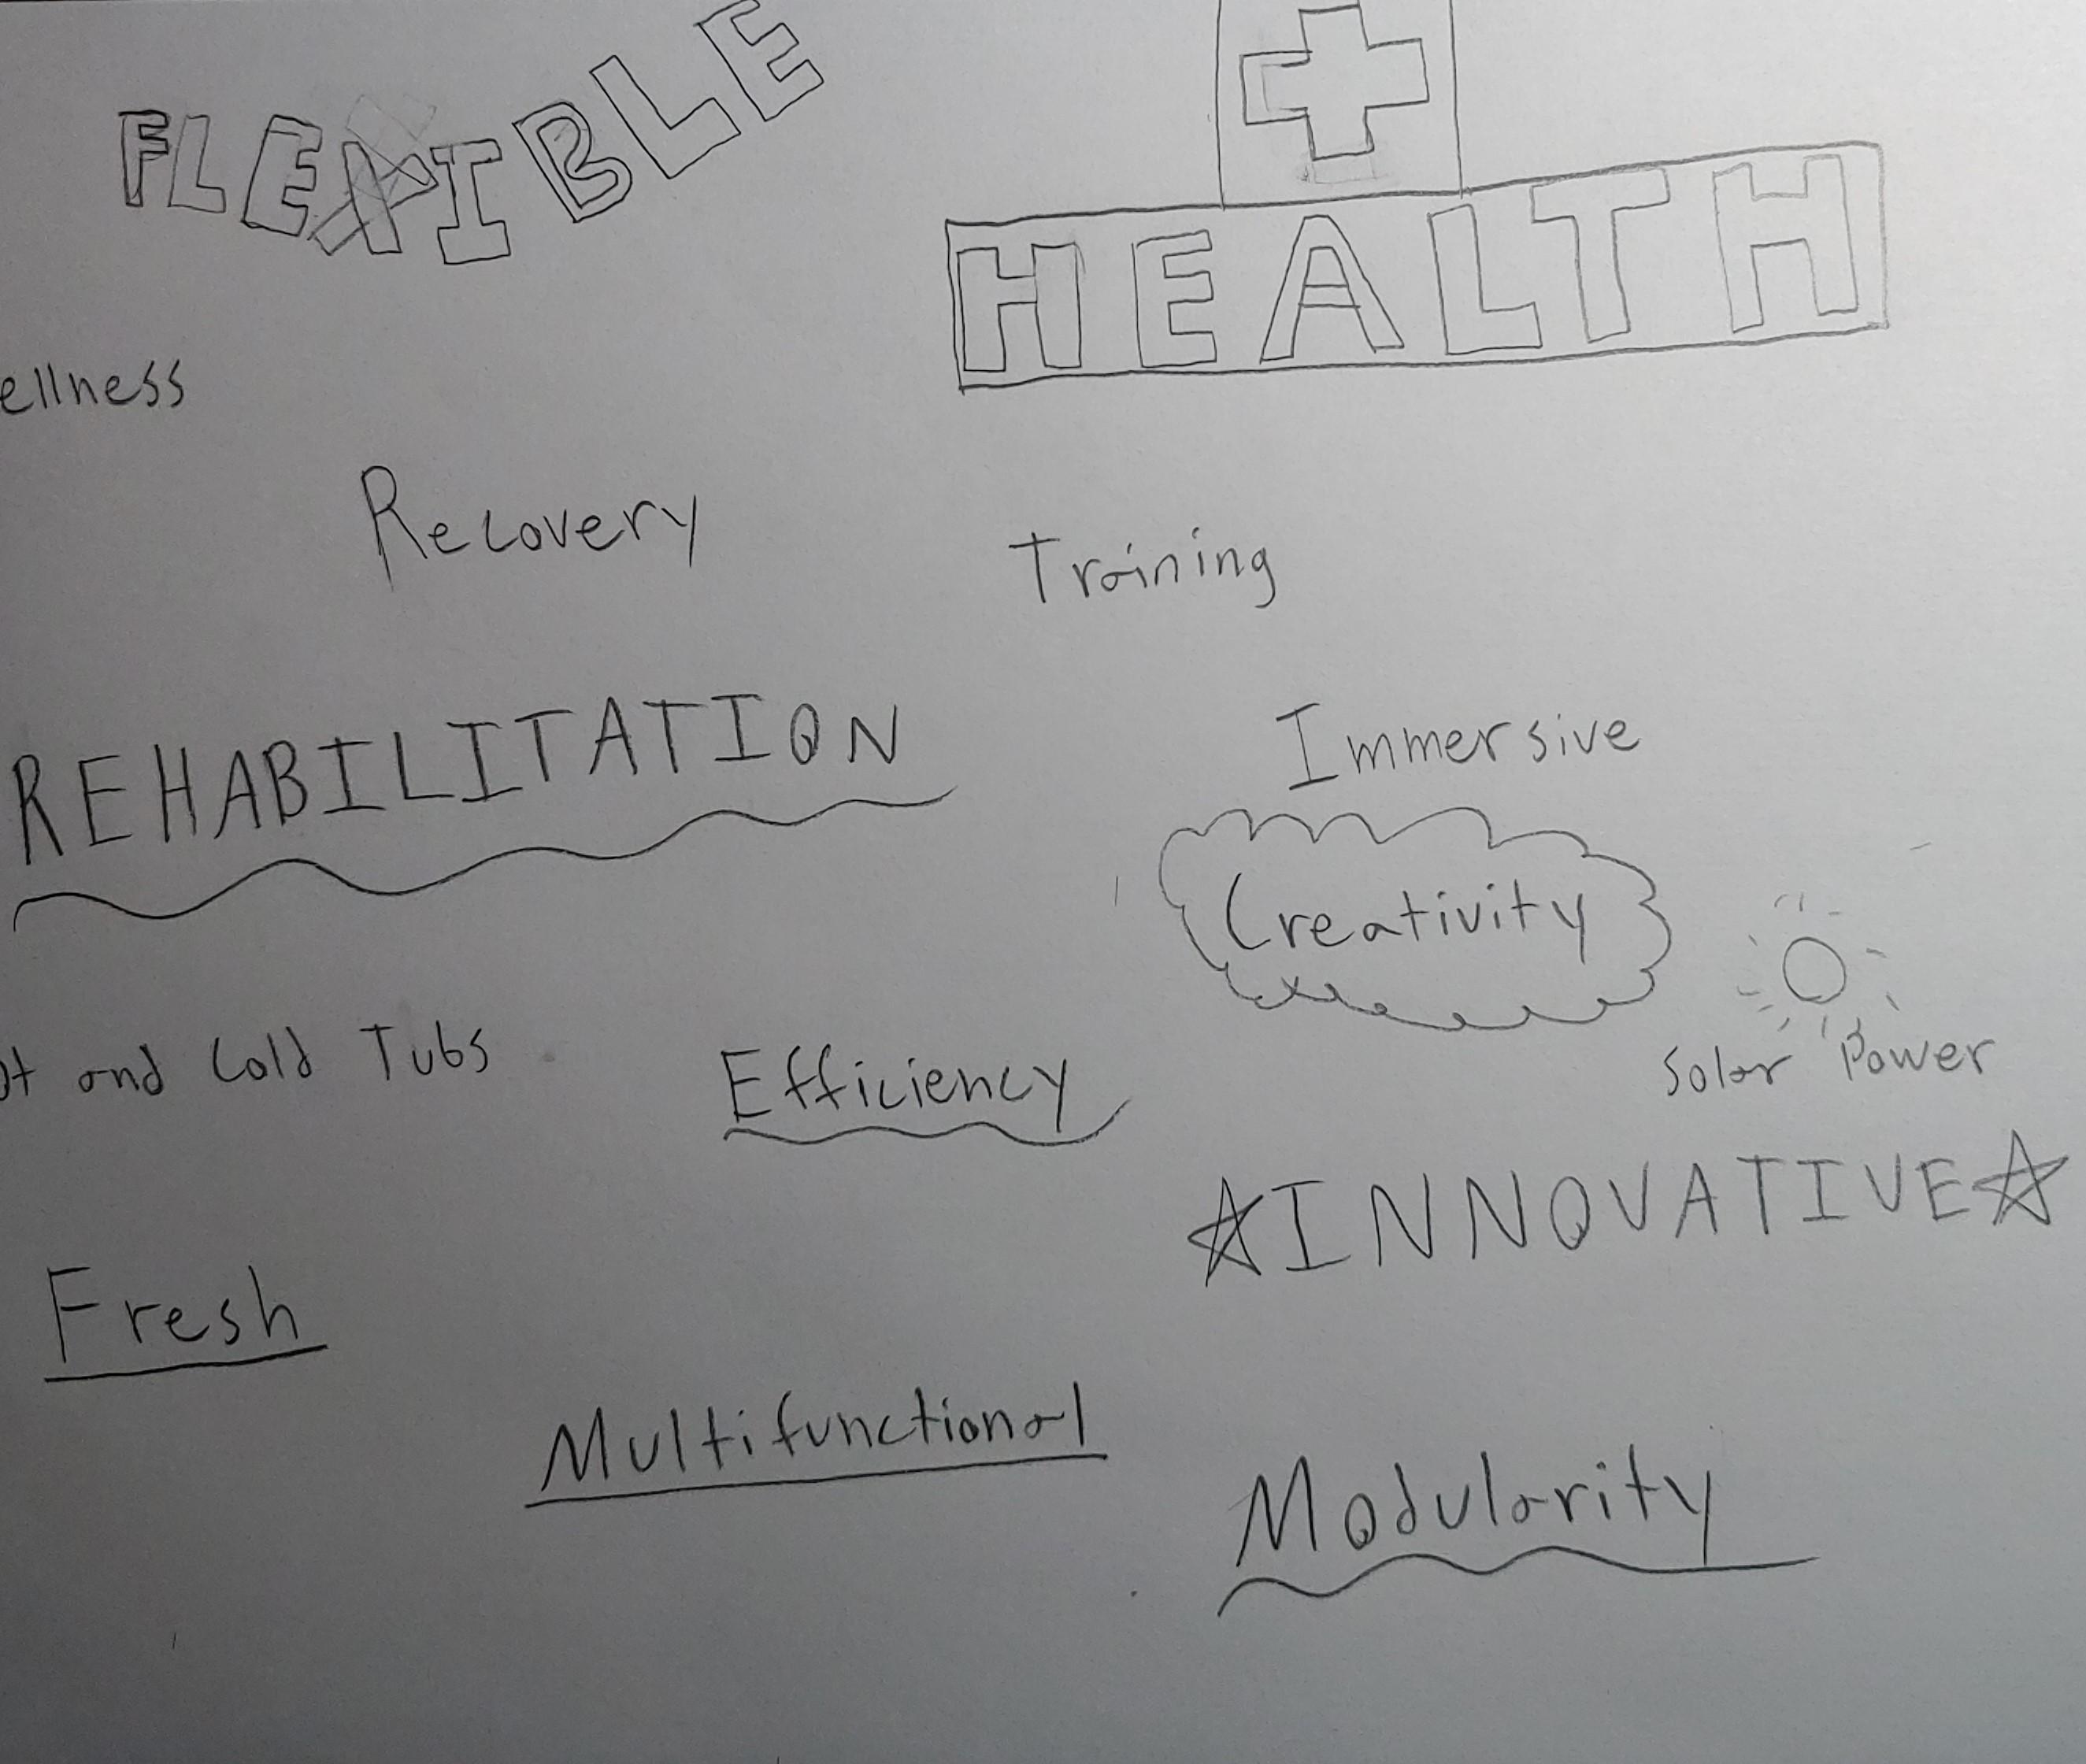 FLEXIBLE
HEALTH
ellness
Recovery
Training
REHABILITATION
Immersive
Creativity
ot and Cold Tubs
Efficiency
Solar Power
INNOVATIVE
Fresh
Multifunctional
Modularity